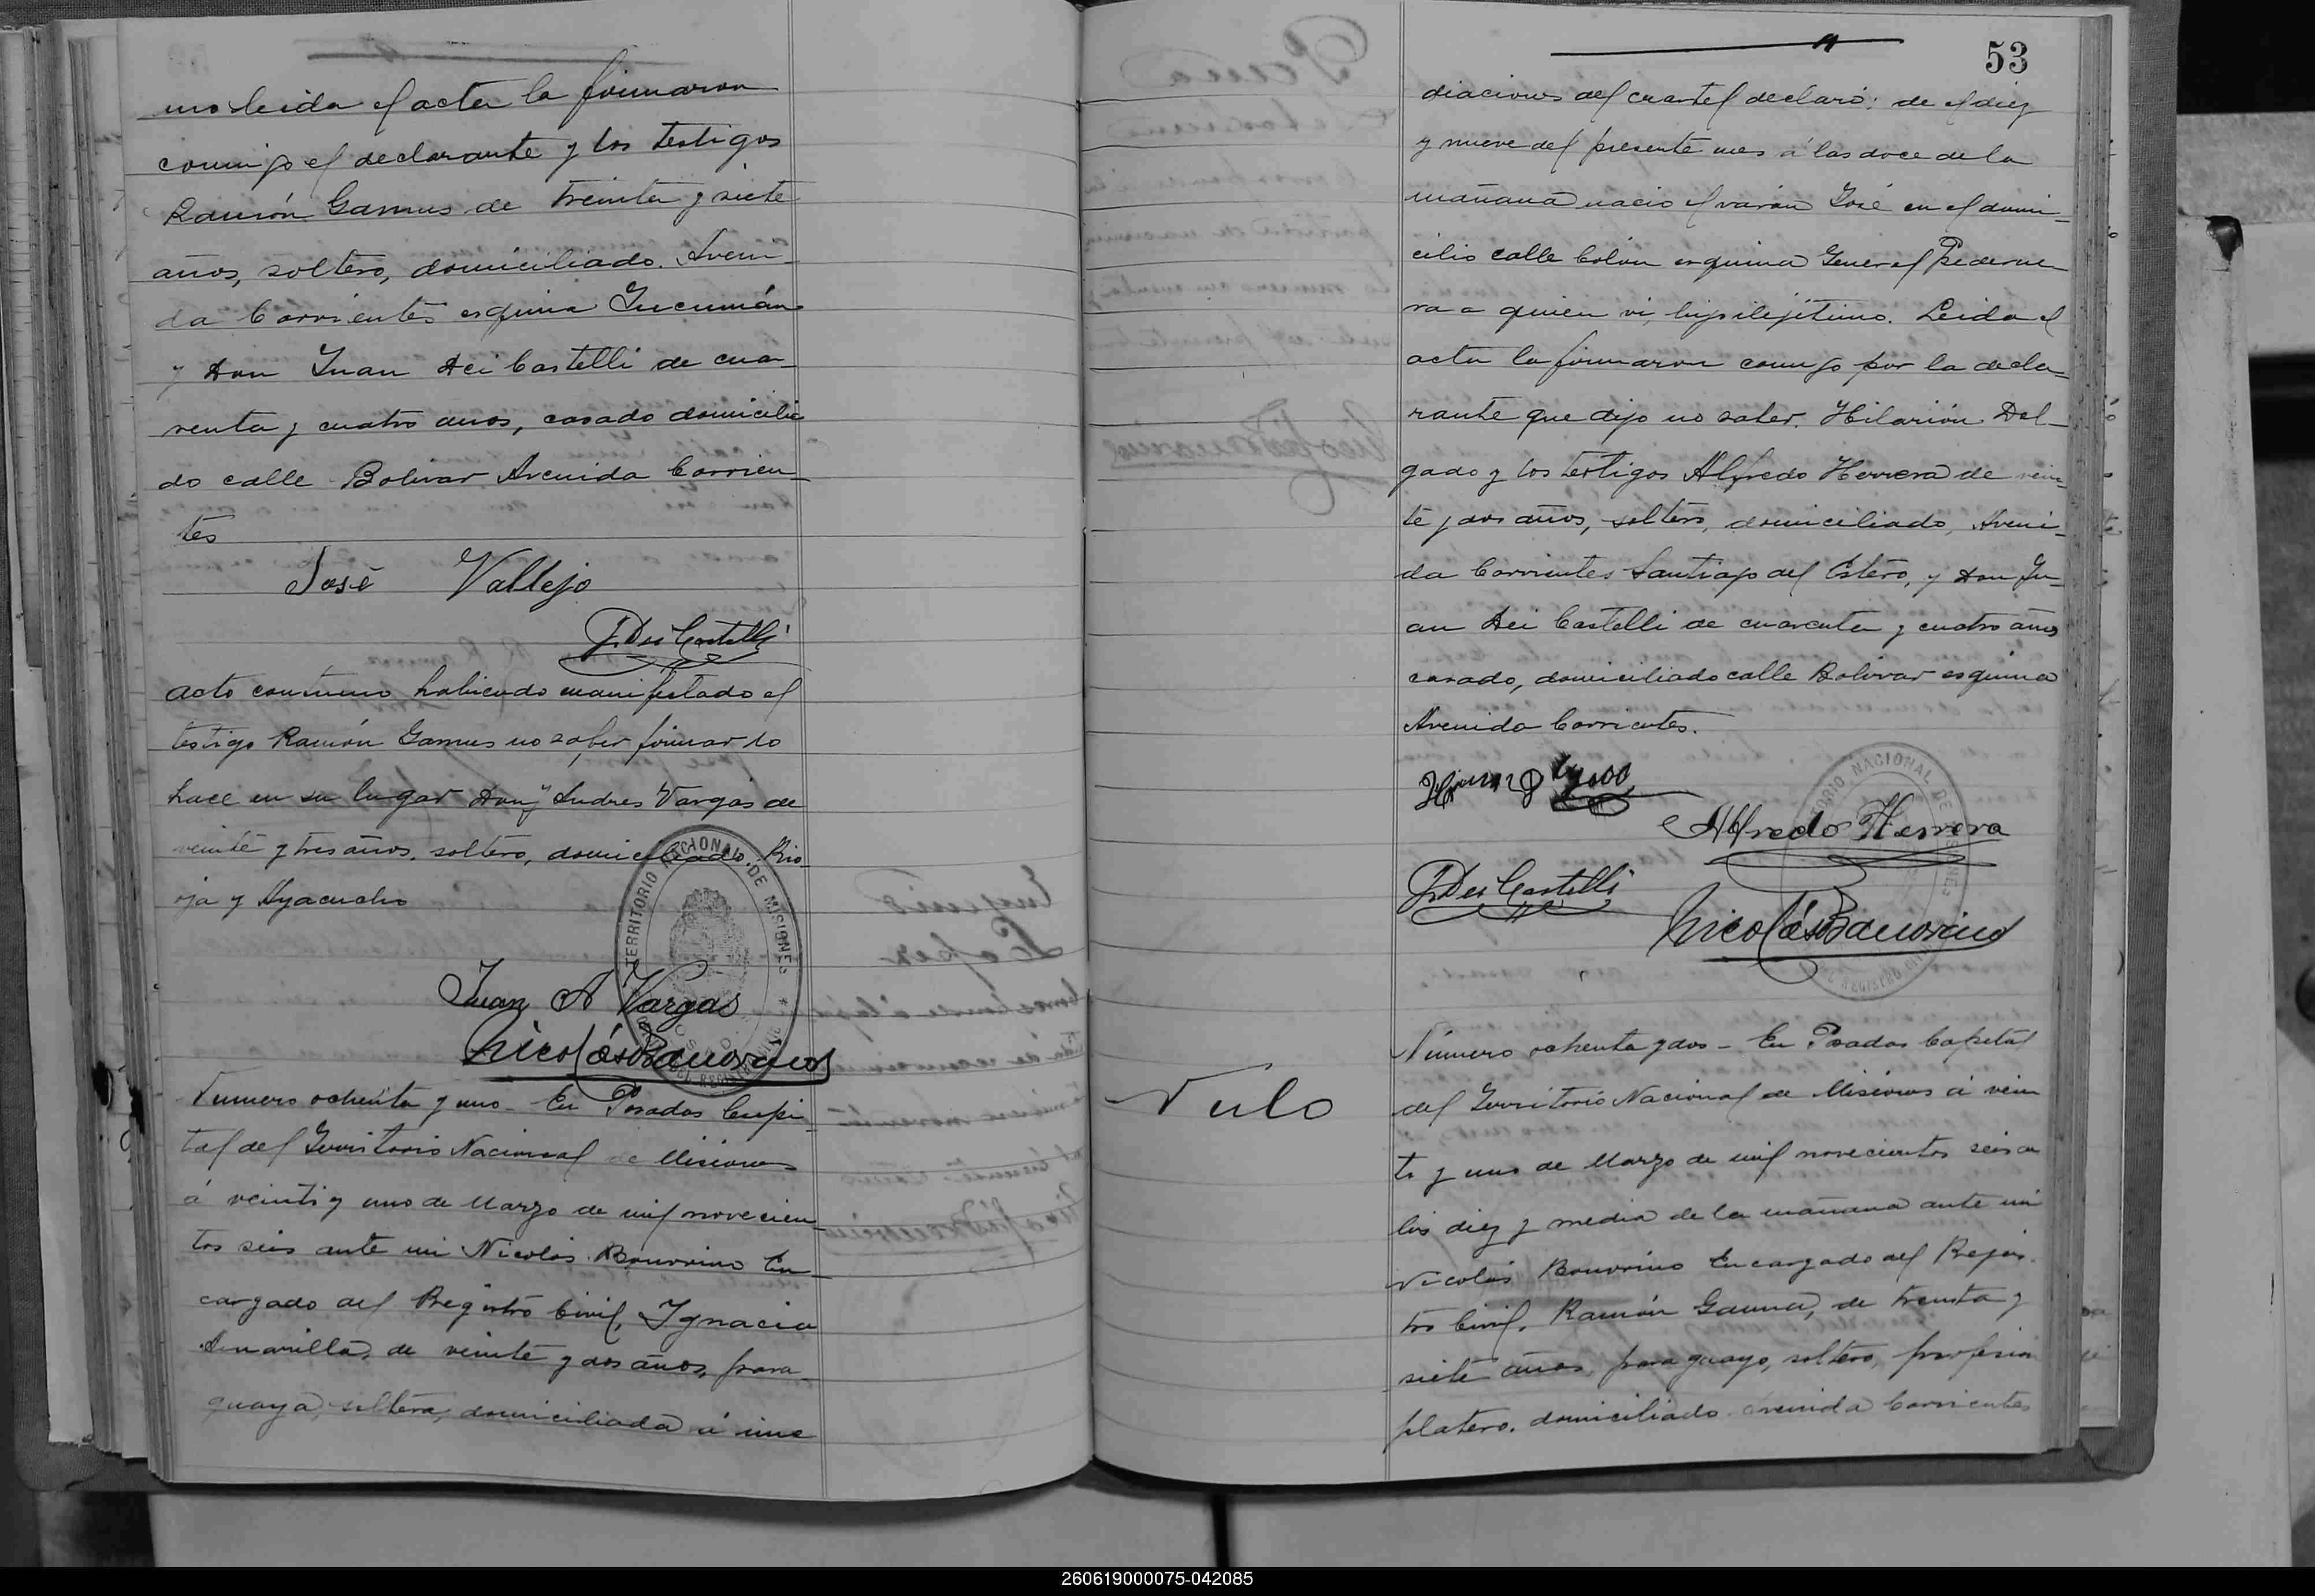 mo leida el acta la firmaron
conmigo el declarante y los testigos
Ramón Gamus de treinta y siete
años, soltero, domiciliado. Aveni-
da Corrientes esquina Tucumán
y Don Juan Dei Castelli de cua-
renta y cuatro anos, casado domicilia
do calle Bolivar Avenida Corrien-
tes
José Vallejo
J. Dei Castelli
acto continuo habiendo manifestado el
testigo Ramón Gamus no saber firmar lo
hace en su lugar Don Andres Vargas de
veinte y tres años, soltero, domiciliado. Rio-
oja y Ayacucho
TERRITORIO NACIONAL DE MISIONES
Juan A Vargas
Nicolás Bonorino
Numero ochenta y uno - En Posadas Capi-
tal del Territorio Nacional de Misiones
á veinti y uno de Marzo de mil novecien-
tos seis ante mi Nicolás Bonorino En-
cargado del Registro Civil, Ignacia
Amarilla, de veinte y dos años, para-
guaya, soltera, domiciliada á inme
53
diaciones del cuartel declaró: de el diez
y nueve del presente mes á las doce de la
mañana nació el varón José en el domi-
cilio calle Colón esquina General Pederne
ra a quien vi, hijo ilejítimo. Leida el
acta la firmaron conmigo por la decla-
rante que dijo no saber. Hilarión Del-
gado y los testigos Alfredo Herrera de vein-
te y dos años, soltero, domiciliado, Aveni-
da Corrientes Santiago del Estero, y Don Ju-
an Dei Castelli de cuarenta y cuatro años
casado, domiciliado calle Bolivar esquina
Avenida Corrientes.
Alfredo Herrera
J. Dei Castelli
Nicolás Bonorino
Nulo
Número ochenta y dos - En Posadas Capital
del Territorio Nacional de Misiones á vein
te y uno de Marzo de mil novecientos seis a
las diez y media de la mañana ante mi
Nicolás Bonorino Encargado del Rejis-
tro Civil, Ramón Gauna, de treinta y
siete años, paraguayo, soltero, profesion
platero, domiciliado avenida Corrientes
260619000075-042085